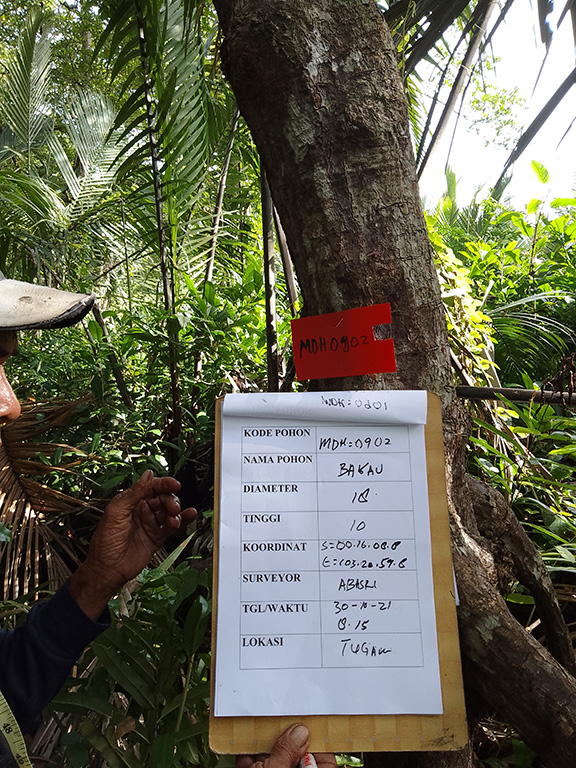 MDH0902
MDH=0901
KODE POHON MDH=0902
NAMA POHON BAKAU
DIAMETER 18
TINGGI 10
KOORDINAT S=00.16.08.8
E=103.20.59.8
SURVEYOR
TGL/WAKTU 30-10-21
8.15
LOKASI